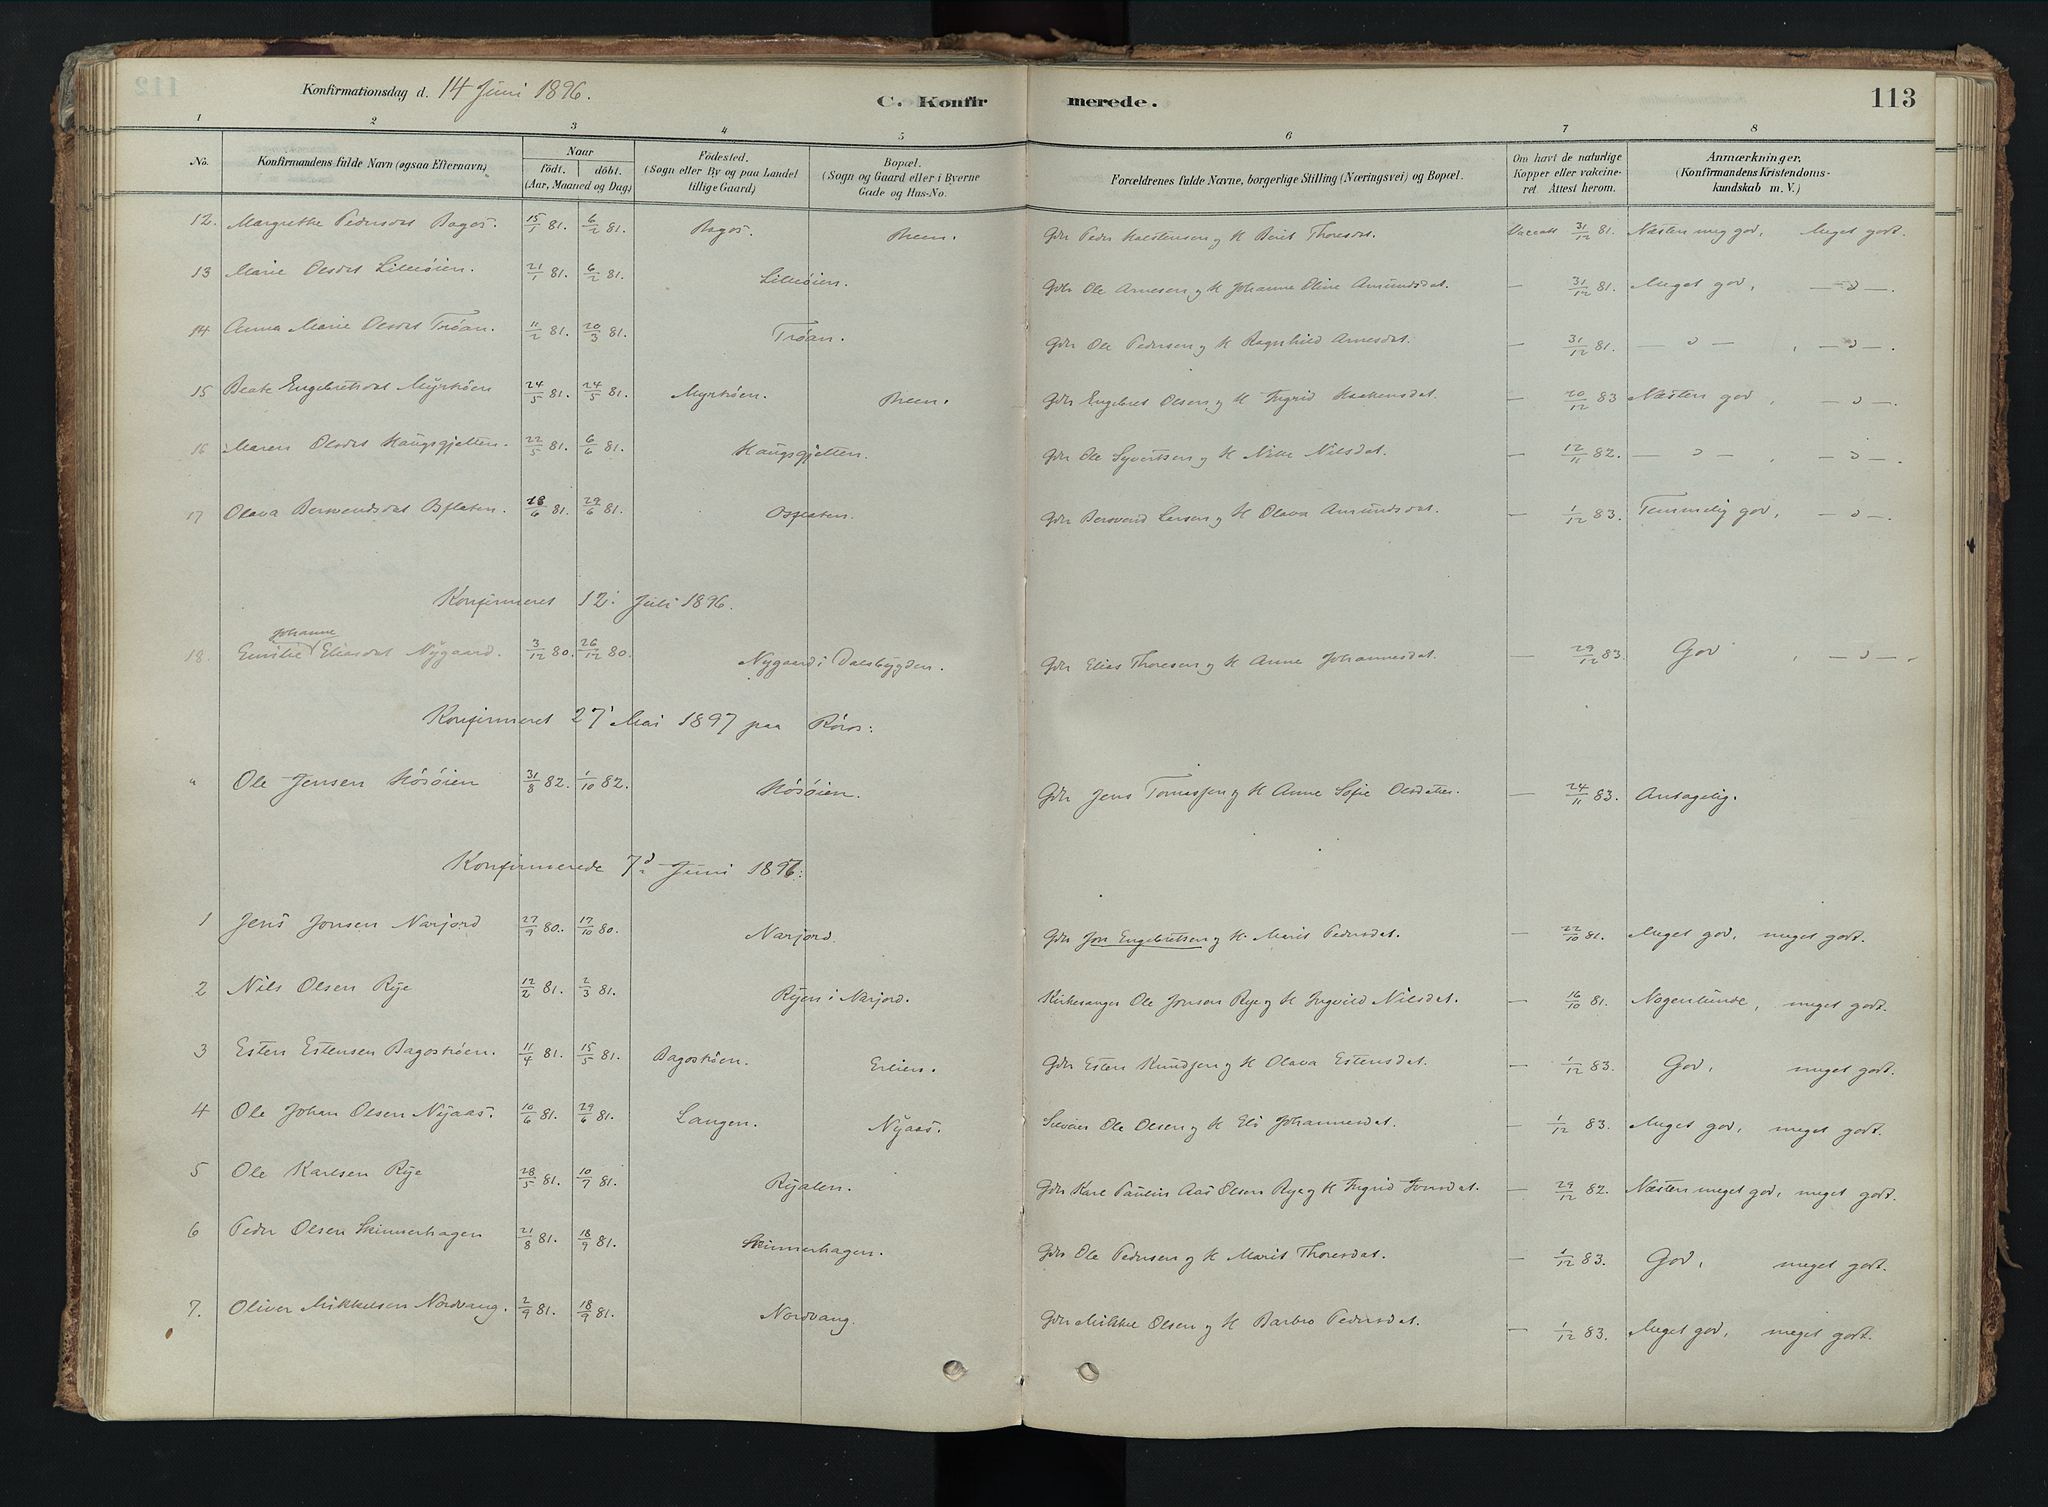 Konfirmationsdag d. 14 Juni 1896.
C. Konfirmerede.
113
1 2 3 4 5 6 7 8
No.
Konfirmandens fulde Navn (ogsaa Efternavn)
Naar
födt. döbt.
(Aar, Maaned og Dag)
Födested.
(Sogn eller By og paa Landet tillige Gaard)
Bopæl.
(Sogn og Gaard eller i Byerne Gade og Hus-No.
Forældrenes fulde Navne, borgerlige Stilling (Næringsvei) og Bopæl.
Om havt de naturlige Kopper eller vakcineret. Attest herom.
Anmærkninger.
(Konfirmandens Kristendomskundskab m. V.)
12. Margrethe Pedersdat Bagos. 15/1 81. 6/2 81. Bagos. Gdr Peder Halstensen og H Berit Thoresdat. 31/12 81. Næsten meg god, Meget godt.
13 Marie Olsdat Lilleöien. 21/1 81. 6/2 81. Lilleöien. Gdr Ole Arnesen og H Johanne Oline Amundsdat. — 31/12 81. Meget god, — " —.
14 Anna Marie Olsdat Tröan. 11/2 81. 20/3 81. Tröan. Gdr Ole Pedersen og H Ragnhild Arnesdat. — 31/12 81. — " —, — " —.
15 Beate Engebretsdat Myrhöen 24/5 81. 24/5 81. Myrhöen. Gdr Engebret Olsen og H Ingrid Haakensdat. — 20/12 83 Næsten god, — " —.
16 Maren Olsdat Haugsgjelten. 22/5 81. 6/6 81. Haugsgjelten. Gdr Ole Syvertsen og H Nille Nilsdat. — 12/11 82. — " —, — " —.
17 Olava 18/6 81. 29/6 81. Gdr Bersvend Larsen og H Olava Amundsdat. — 1/12 83. Temmelig god, — " —.
Konfirmeret 12. Juli 1896.
18. Emilie Johanne Eliasdat Nygaard. 3/12 80. 26/12 80. Nygaard i Dalsbygden. Gdr Elias Thoresen og H Anne Johannesdat. — 29/12 83. God, — " —.
Konfirmeret 27 Mai 1897 paa Röros:
" Ole Jensen Hösöien 31/8 82. 1/10 82. Hösöien. Gdr Jens Tomassen og H Anne Sofie Olsdatter. — 24/11 83. Antagelig.
Konfirmerede 7d Juni 1896:
1 Jens Jonsen Narjord 27/9 80. 17/10 80. Narjord. Gdr Jon Engebretsen og H. Marit Pedersdat. — 22/10 81. Meget god, meget godt.
2 Nils Olsen Rye 12/2 81. 2/3 81. Ryen i Narjord. Kirkesanger Ole Jonsen Rye og H Ingvild Nilsdat. — 16/10 81. Nogenlunde, meget godt.
3 Esten Estensen Bagoshöen. 11/4 81. 15/5 81. Bagoshöen. Erlien. Gdr Esten Knudsen og H Olava Estensdat. — 1/12 83. God, meget godt.
4 Ole Johan Olsen Nyaas. 10/6 81. 29/6 81. Langen. Nyaas. Ole Olsen og H Eli Johannesdat. — 1/12 83. Meget god, meget godt.
5 Ole Karlsen Rye 28/5 81. 10/7 81. Ryalen. Gdr Karl Paulin Aas Olsen Rye og H Ingrid Jonsdat. — 29/12 82. Næsten meget god, meget godt.
6 Peder Olsen Skinnerhagen 21/8 81. 18/9 81. Skinnerhagen. Gdr Ole Pedersen og H Marit Thoresdat. — 1/12 83. God, meget godt.
7. Oliver Mikkelsen Nordvang. 2/9 81. 18/9 81. Nordvang. Gdr Mikkel Olsen og H Barbro Pedersdat. — 1/12 83. Meget god, meget godt.